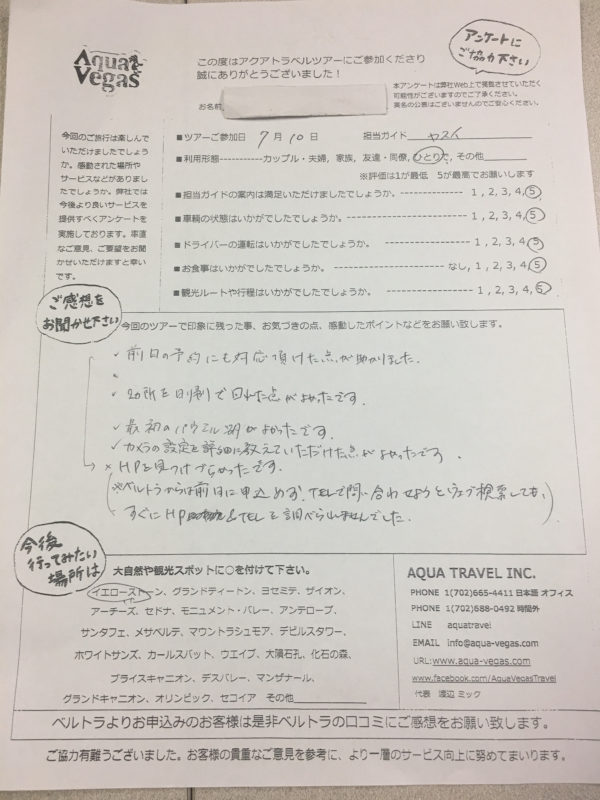 Aqua Vegas
この度はアクアトラベルツアーにご参加くださり
誠にありがとうございました！
アンケートに
ご協力下さい
本アンケートは弊社Web上で掲載させていただく
可能性がございますのでご了承ください。
実名の公表はございませんのでご安心ください。
お名前
今回のご旅行は楽しんで
いただけましたでしょう
か。感動された場所や
サービスなどがありまし
たでしょうか。弊社では
今後より良いサービスを
提供すべくアンケートを
実施しております。率直
なご意見、ご要望をお聞
かせいただけますと幸い
です。
■ツアーご参加日 7月10日 担当ガイド ヤスイ
■利用形態-----------カップル・夫婦, 家族, 友達・同僚, ひとりた, その他
※評価は1が最低 5が最高でお願いします
■担当ガイドの案内は満足いただけましたでしょうか。 1, 2, 3, 4, 5
■車輌の状態はいかがでしたでしょうか。 1, 2, 3, 4, 5
■ドライバーの運転はいかがでしたでしょうか。 1, 2, 3, 4, 5
■お食事はいかがでしたでしょうか。 なし, 1, 2, 3, 4, 5
■観光ルートや行程はいかがでしたでしょうか。 1, 2, 3, 4, 5
ご感想を
お聞かせ下さい
今回のツアーで印象に残った事、お気づきの点、感動したポイントなどをお願い致します。
✓前日の予約にも対応頂けた点が助かりました。
で回れた点がよかったです。
✓最初の がよかったです。
✓カメラの設定を詳細に教えていただけた点がよかったです。
×HPを見つけづらかったです。
(※ベルトラからは前日に申込めず、TELで問い合わせようとウェブ検索しても、
すぐにHP &TELを調べられませんでした。)
今後
行ってみたい
場所は
大自然や観光スポットに○を付けて下さい。
イエローストーン、グランドティートン、ヨセミテ、ザイオン、
アーチーズ、セドナ、モニュメント・バレー、アンテロープ、
サンタフェ、メサベルデ、マウントラシュモア、デビルスタワー、
ホワイトサンズ、カールスバット、ウエイブ、大隕石孔、化石の森、
ブライスキャニオン、デスバレー、マンザナール、
グランドキャニオン、オリンピック、セコイア その他
AQUA TRAVEL INC.
PHONE 1(702)665-4411 日本語 オフィス
PHONE 1(702)688-0492 時間外
LINE aquatravel
EMAIL info@aqua-vegas.com
URL:www.aqua-vegas.com
www.facebook.com/AquaVegasTravel
代表 渡辺 ミック
ベルトラよりお申込みのお客様は是非ベルトラの口コミにご感想をお願い致します。
ご協力有難うございました。お客様の貴重なご意見を参考に、より一層のサービス向上に努めてまいります。